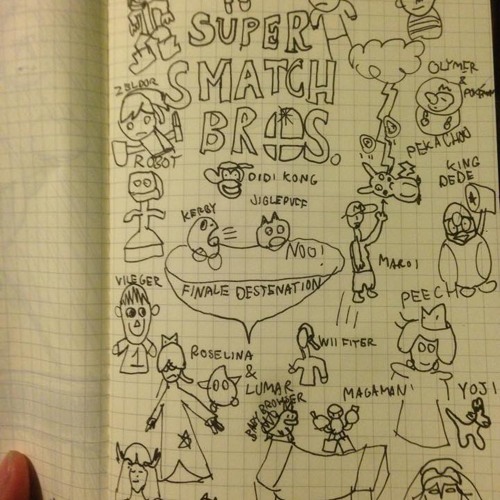 SUPER
SMATCH
BROS.
ZELDOR
OLYMER
&
PEKACHOO
ROBOT
DIDI KONG
KING
DEDE
JIGLEPUFF
KERBY
NOO!
MAROI
VILEGER
FINALE DESTENATION
PEECH
WII FITER
ROSELINA
&
LUMAR
MAGAMAN
YOJI
BABY BROWSER